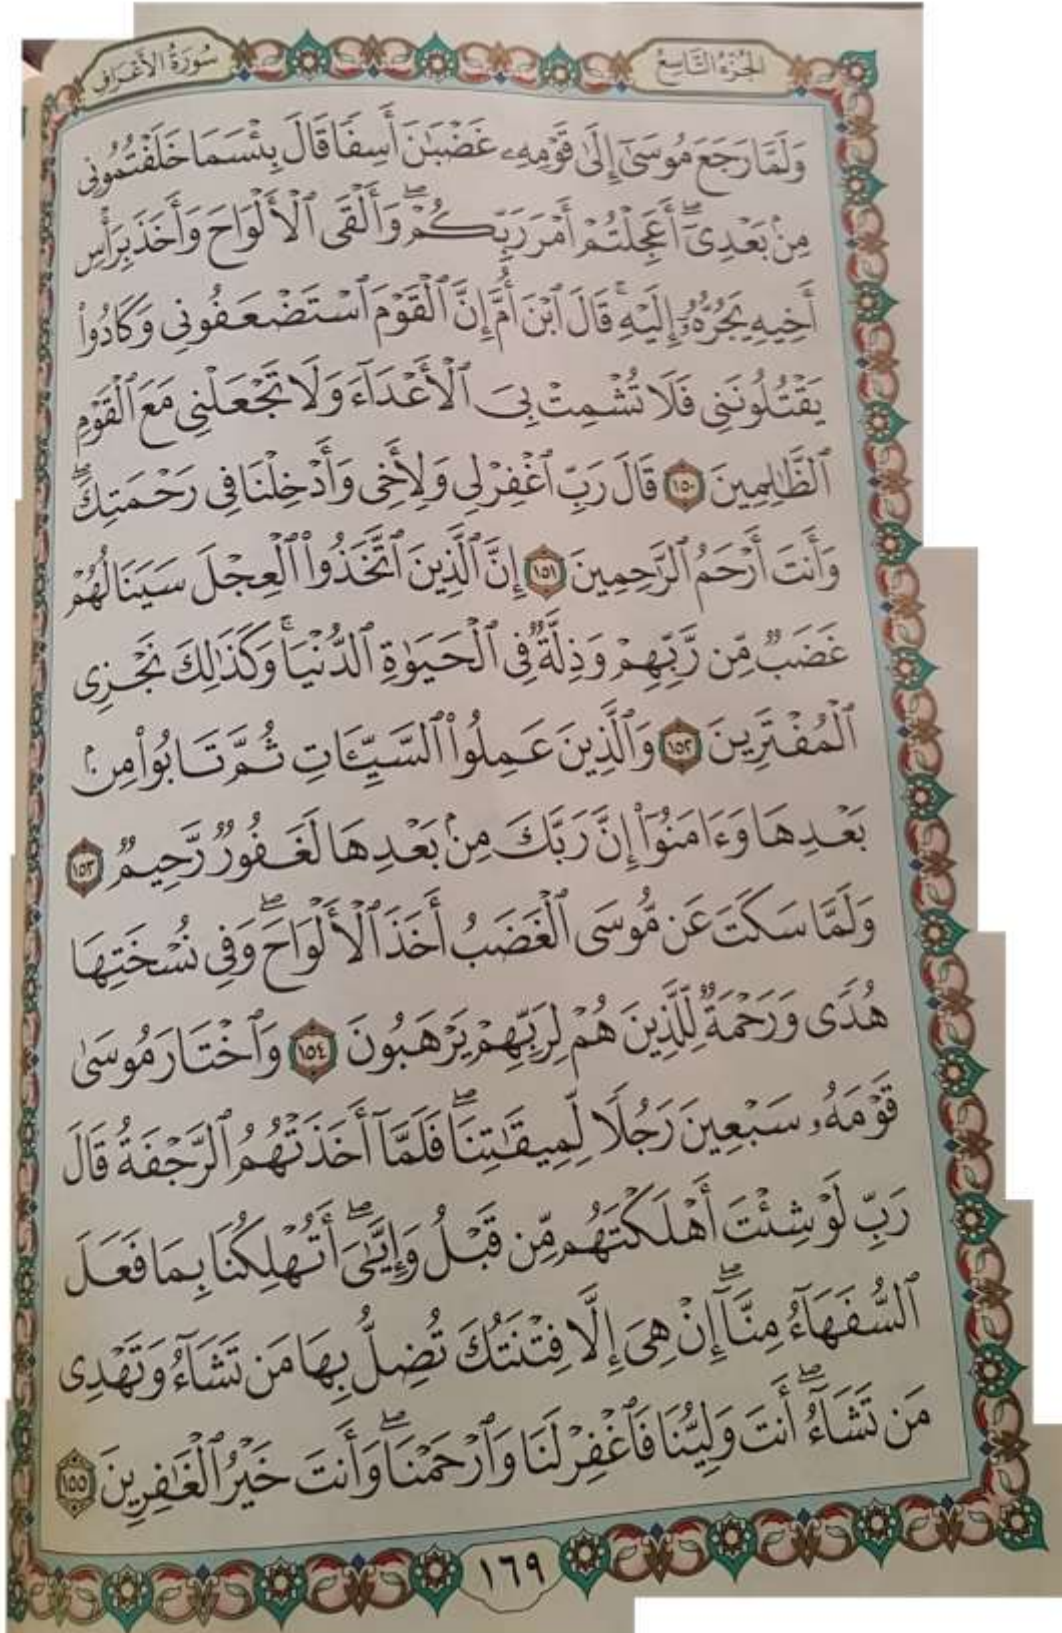 الجزء التاسع
سورة الأعراف
وَلَمَّا رَجَعَ مُوسَىٰٓ إِلَىٰ قَوْمِهِۦ غَضْبَٰنَ أَسِفًا قَالَ بِئْسَمَا خَلَفْتُمُونِى
مِنۢ بَعْدِىٓ ۖ أَعَجِلْتُمْ أَمْرَ رَبِّكُمْ ۖ وَأَلْقَى ٱلْأَلْوَاحَ وَأَخَذَ بِرَأْسِ
أَخِيهِ يَجُرُّهُۥٓ إِلَيْهِ ۚ قَالَ ٱبْنَ أُمَّ إِنَّ ٱلْقَوْمَ ٱسْتَضْعَفُونِى وَكَادُوا۟
يَقْتُلُونَنِى فَلَا تُشْمِتْ بِىَ ٱلْأَعْدَآءَ وَلَا تَجْعَلْنِى مَعَ ٱلْقَوْمِ
ٱلظَّٰلِمِينَ ١٥٠ قَالَ رَبِّ ٱغْفِرْ لِى وَلِأَخِى وَأَدْخِلْنَا فِى رَحْمَتِكَ ۖ
وَأَنتَ أَرْحَمُ ٱلرَّٰحِمِينَ ١٥١ إِنَّ ٱلَّذِينَ ٱتَّخَذُوا۟ ٱلْعِجْلَ سَيَنَالُهُمْ
غَضَبٌ مِّن رَّبِّهِمْ وَذِلَّةٌ فِى ٱلْحَيَوٰةِ ٱلدُّنْيَا ۚ وَكَذَٰلِكَ نَجْزِى
ٱلْمُفْتَرِينَ ١٥٢ وَٱلَّذِينَ عَمِلُوا۟ ٱلسَّيِّـَٔاتِ ثُمَّ تَابُوا۟ مِنۢ
بَعْدِهَا وَءَامَنُوٓا۟ إِنَّ رَبَّكَ مِنۢ بَعْدِهَا لَغَفُورٌ رَّحِيمٌ ١٥٣
وَلَمَّا سَكَتَ عَن مُّوسَى ٱلْغَضَبُ أَخَذَ ٱلْأَلْوَاحَ ۖ وَفِى نُسْخَتِهَا
هُدًى وَرَحْمَةٌ لِّلَّذِينَ هُمْ لِرَبِّهِمْ يَرْهَبُونَ ١٥٤ وَٱخْتَارَ مُوسَىٰ
قَوْمَهُۥ سَبْعِينَ رَجُلًا لِّمِيقَٰتِنَا ۖ فَلَمَّآ أَخَذَتْهُمُ ٱلرَّجْفَةُ قَالَ
رَبِّ لَوْ شِئْتَ أَهْلَكْتَهُم مِّن قَبْلُ وَإِيَّٰىَ ۖ أَتُهْلِكُنَا بِمَا فَعَلَ
ٱلسُّفَهَآءُ مِنَّآ ۖ إِنْ هِىَ إِلَّا فِتْنَتُكَ تُضِلُّ بِهَا مَن تَشَآءُ وَتَهْدِى
مَن تَشَآءُ ۖ أَنتَ وَلِيُّنَا فَٱغْفِرْ لَنَا وَٱرْحَمْنَا ۖ وَأَنتَ خَيْرُ ٱلْغَٰفِرِينَ ١٥٥
١٦٩